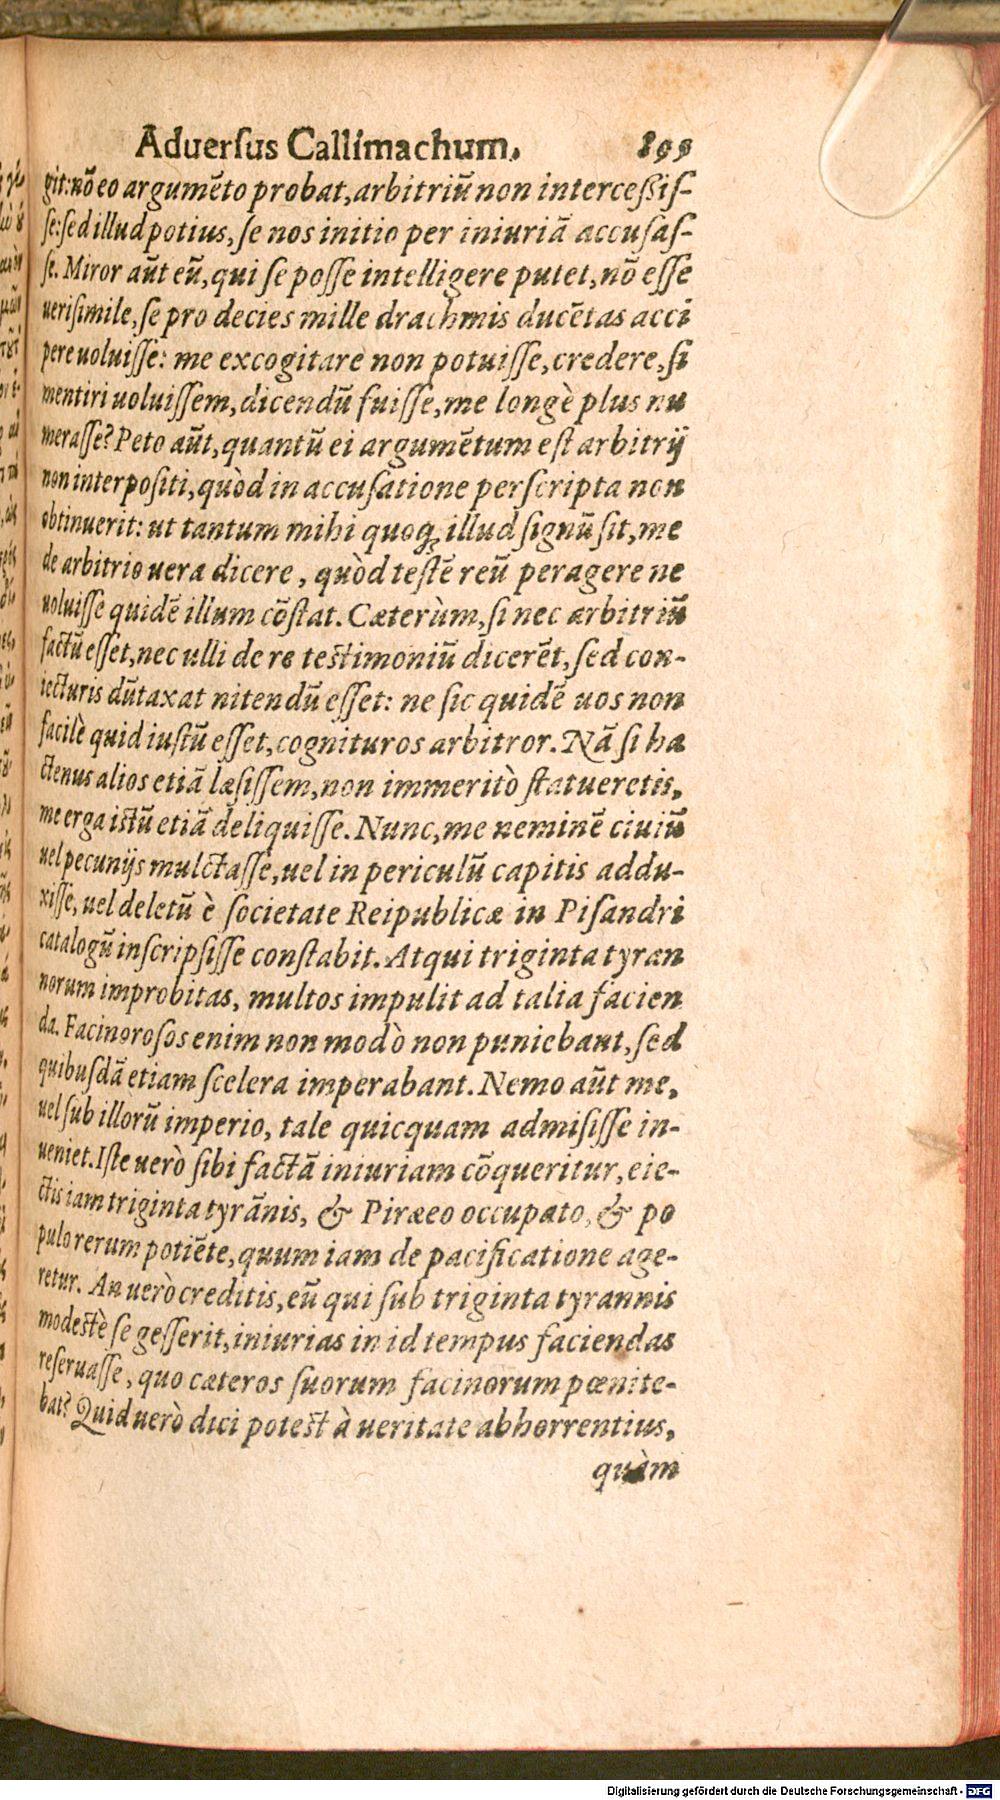 Aduerſus Callimachum. 899
git: nõ eo argumẽto probat, arbitriũ non interceßiſ-
ſe: ſed illud potius, ſe nos initio per iniuriã accuſaſ-
ſe. Miror aũt eũ, qui ſe poſſe intelligere putet, nõ eſſe
ueriſimile, ſe pro decies mille drachmis ducẽtas acci
pere uoluiſſe: me excogitare non potuiſſe, credere, ſi
mentiri uoluiſſem, dicendũ fuiſſe, me longè plus nu
meraſſe? Peto aũt, quantũ ei argumẽtum eſt arbitrij
non interpoſiti, quòd in accuſatione perſcripta non
obtinuerit: ut tantum mihi quoq; illud ſignũ ſit, me
de arbitrio uera dicere, quòd teſtẽ reũ peragere ne
uoluiſſe quidẽ illum cõſtat. Cæterùm, ſi nec arbitriũ
factũ eſſet, nec ulli de re teſtimoniũ dicerẽt, ſed con-
iecturis dũtaxat nitendũ eſſet: ne ſic quidẽ uos non
facilè quid iuſtũ eſſet, cognituros arbitror. Nã ſi ha
ctenus alios etiã læſiſſem, non immeritò ſtatueretis,
me erga iſtũ etiã deliquiſſe. Nunc, me neminẽ ciuiũ
uel pecunijs mulctaſſe, uel in periculũ capitis addu-
xiſſe, uel deletũ è ſocietate Reipublicæ in Piſandri
catalogũ inſcripſiſſe conſtabit. Atqui triginta tyran
norum improbitas, multos impulit ad talia facien
da. Facinoroſos enim non modò non puniebant, ſed
quibuſdã etiam ſcelera imperabant. Nemo aũt me,
uel ſub illorũ imperio, tale quicquam admiſiſſe in-
ueniet. Iſte uerò ſibi factã iniuriam cõqueritur, eie-
ctis iam triginta tyrãnis, & Piræeo occupato, & po
pulo rerum potiẽte, quum iam de pacificatione age-
retur. An uerò creditis, eũ qui ſub triginta tyrannis
modeſtè ſe geſſerit, iniurias in id tempus faciendas
reſeruaſſe, quo cæteros ſuorum facinorum pœnite-
bat? Quid uerò dici poteſt à ueritate abhorrentius,
quàm
Digitalisierung gefördert durch die Deutsche Forschungsgemeinschaft - DFG